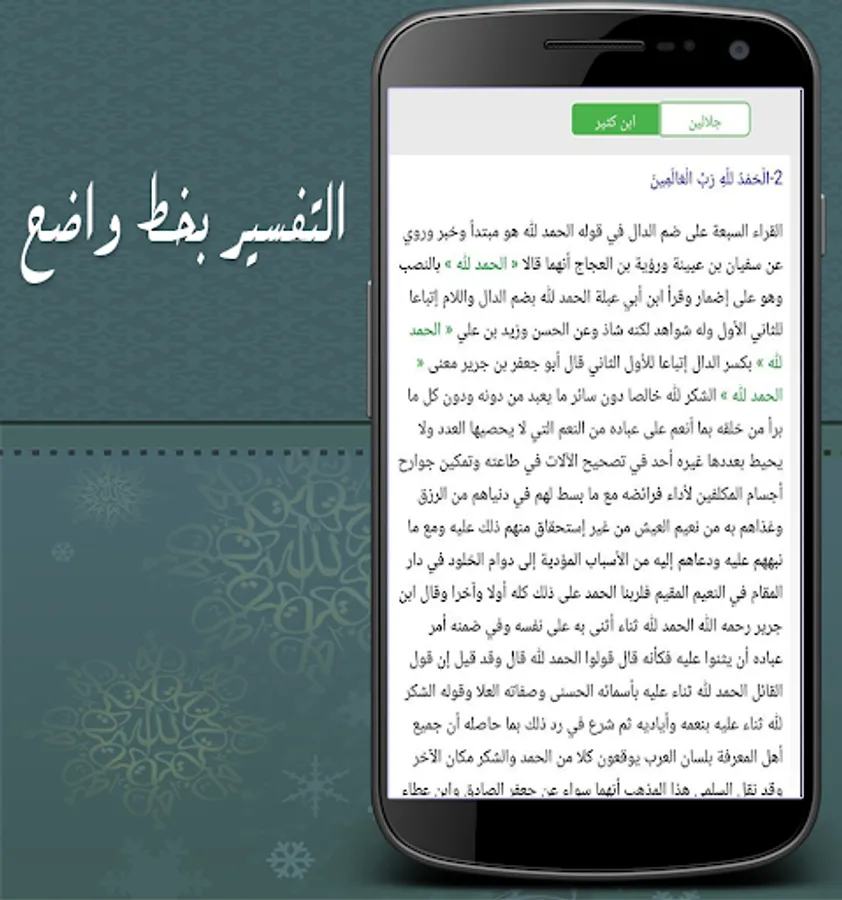 التفسير بخط واضح
جلالين
ابن كثير
2-الْحَمْدُ للّهِ رَبِّ الْعَالَمِينَ
القراء السبعة على ضم الدال في قوله الحمد لله هو مبتدأ وخبر وروي
عن سفيان بن عيينة ورؤية بن العجاج أنهما قالا « الحمد لله » بالنصب
وهو على إضمار وقرأ ابن أبي عبلة الحمد لله بضم الدال واللام إتباعا
للثاني الأول وله شواهد لكنه شاذ وعن الحسن وزيد بن علي « الحمد
لله » بكسر الدال إتباعا للأول الثاني قال أبو جعفر بن جرير معنى «
الحمد لله » الشكر لله خالصا دون سائر ما يعبد من دونه ودون كل ما
برأ من خلقه بما أنعم على عباده من النعم التي لا يحصيها العدد ولا
يحيط بعددها غيره أحد في تصحيح الآلات في طاعته وتمكين جوارح
أجسام المكلفين لأداء فرائضه مع ما بسط لهم في دنياهم من الرزق
وغذاهم به من نعيم العيش من غير إستحقاق منهم ذلك عليه ومع ما
نبههم عليه ودعاهم إليه من الأسباب المؤدية إلى دوام الخلود في دار
المقام في النعيم المقيم فلربنا الحمد على ذلك كله أولا وآخرا وقال ابن
جرير رحمه الله الحمد لله ثناء أثنى به على نفسه وفي ضمنه أمر
عباده أن يثنوا عليه فكأنه قال قولوا الحمد لله قال وقد قيل إن قول
القائل الحمد لله ثناء عليه بأسمائه الحسنى وصفاته العلا وقوله الشكر
لله ثناء عليه بنعمه وأياديه ثم شرع في رد ذلك بما حاصله أن جميع
أهل المعرفة بلسان العرب يوقعون كلا من الحمد والشكر مكان الآخر
وقد نقل السلمي هذا المذهب أنهما سواء عن جعفر الصادق وابن عطاء